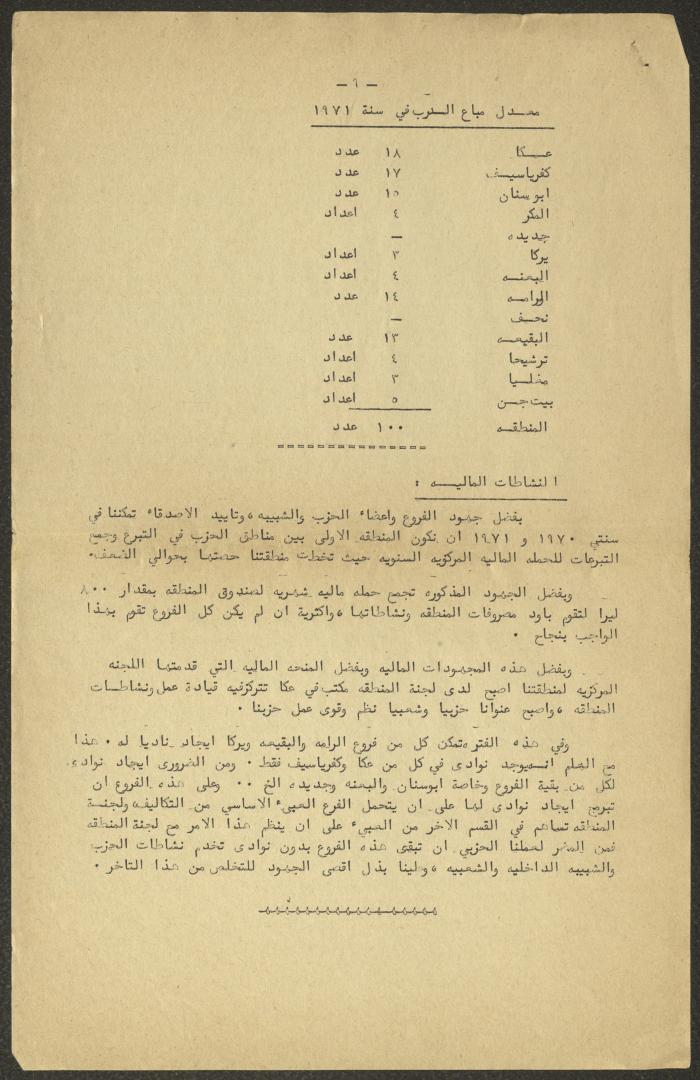 - ٦ -
معدل مباع الدرب في سنة ١٩٧١
عكا ١٨ عدد
كفرياسيف ١٧ عدد
ابوسنان ١٥ عدد
المكر ٤ اعداد
جديده -
يركا ٣ اعداد
البعنه ٤ اعداد
الرامه ١٤ عدد
نحف -
البقيعه ١٣ عدد
ترشيحا ٤ اعداد
معليا ٣ اعداد
بيت جن ٥ اعداد
المنطقه ١٠٠ عدد
النشاطات الماليه :
بفضل جهود الفروع واعضاء الحزب والشبيبه، وتاييد الاصدقاء تمكننا في
سنتي ١٩٧٠ و ١٩٧١ ان نكون المنطقه الاولى بين مناطق الحزب في التبرع وجمع
التبرعات للحمله الماليه المركزيه السنويه حيث تخطت منطقتنا حصتها بحوالي الضعف.
وبفضل الجهود المذكوره تجمع حمله ماليه شهريه لصندوق المنطقه بمقدار ٨٠٠
ليرا لتقوم باود مصروفات المنطقه ونشاطاتها، واكثرية ان لم يكن كل الفروع تقوم بهذا
الواجب بنجاح .
وبفضل هذه المجهودات الماليه وبفضل المنحه الماليه التي قدمتها اللجنه
المركزيه لمنطقتنا اصبح لدى لجنة المنطقه مكتب في عكا تتركز فيه قيادة عمل ونشاطات
المنطقه، واصبح عنوانا حزبيا وشعبيا نظم وقوى عمل حزبنا .
وفي هذه الفتره تمكن كل من فروع الرامه والبقيعه ويركا ايجاد ناديا له . هذا
مع العلم انه يوجد نوادى في كل من عكا وكفرياسيف فقط . ومن الضرورى ايجاد نوادى
لكل من بقية الفروع وخاصة ابوسنان والبعنه وجديده الخ .. وعلى هذه الفروع ان
تبرمج ايجاد نوادى لها على ان يتحمل الفرع العبىء الاساسي من التكاليف، ولجنة
المنطقه تساهم في القسم الاخر من العبىء على ان ينظم هذا الامر مع لجنة المنطقه
فمن المضر لعملنا الحزبي ان تبقى هذه الفروع بدون نوادى تخدم نشاطات الحزب
والشبيبه الداخليه والشعبيه، ولينا بذل اقصى الجهود للتخلص من هذا التاخر .